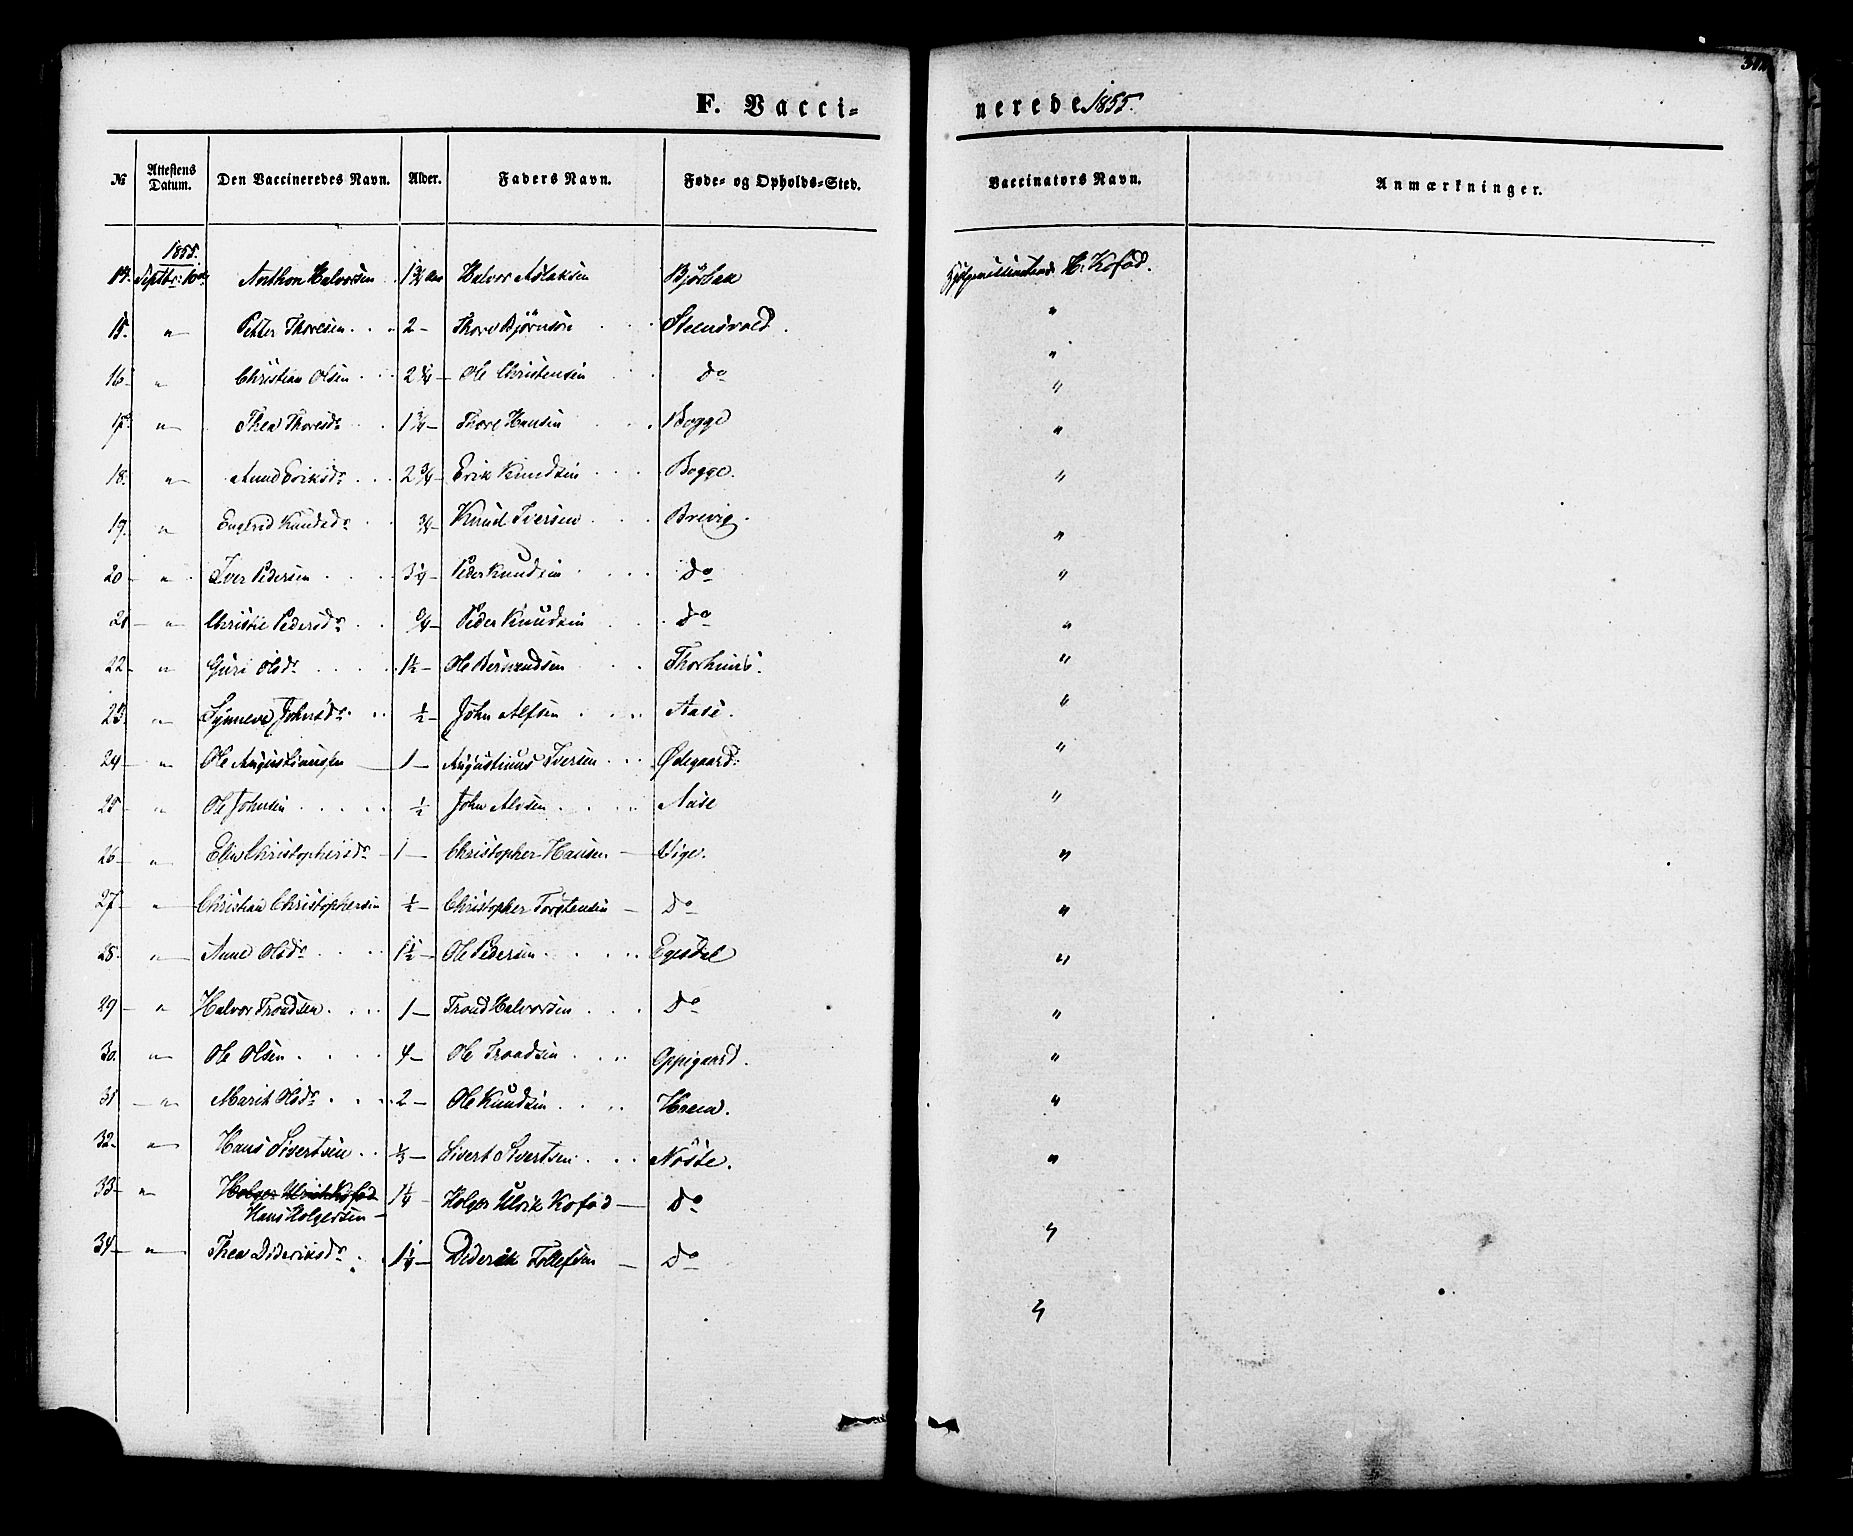 F. Vacci- nerede 1855.
№ Attestens Datum. Den Vaccineredes Navn. Alder. Faders Navn. Føde- og Opholds-Sted. Vaccinators Navn. Anmærkninger.
1855.
14. Septbr: 10de Anthon Halvorsen 1 3/4 Halvor Aslaksen H. Kofod.
15. " Petter Thoresen . . . 2 - Thore Bjørnsen . . . "
16. " Christian Olsen . . . 2 1/4 - Ole Christensen do "
17. " Thea Thoresdr . . 1 3/4 - Thore Hansen . . . Bogge "
18. " Anne Eriksdr . . . 2 3/4 - Erik Knudsen . . . Bogge. "
19. " Knudsdr . . 3/4 - Knud Iversen . . . Brevig. "
20 - " Iver Pedersen . . . 3 1/4 - Peder Knudsen . . . Do "
21 - " Christie Pedersdr . . /4 - Peder Knudsen . . Do "
22 - " Guri Olsdr . . . . 1 1/2 - Ole . . "
23. " Synneva Johnsdr . . 1/2 - John Alfsen . . . Aase. "
24 - " Ole Augustinussen 1 - Augustinus Iversen . . . Ødegaard: "
25 - " Ole Johnsen . . . . . 1/2 John Alvsen . . . . Aase "
26 - " Christophersdr - 1 - Christopher Hansen - Vige. "
27 - " Christian Christophersen 1/2 - Christopher Torstensen - Do "
28. " Anne Olsdr . . . . 1 1/2 - Ole Pedersen . . . . . "
29 - " Halvor Trondsen . . . . 1 - Trond Halvorsen . . . Do "
30. " Ole Olsen . . . . 4 - Ole Trondsen . . . . Oppigaard. "
31 - " Marit Olsdr . . . . 2 - Ole Knudsen . . . . "
32. " Hans Sivertsen . . 1/3 - Sivert Sivertsen . . . Nøste. "
33 - " Holger Ulrich Kofod
Hans Holgersen - 1 1/4 - Holger Ulrik Kofod - Do "
34 - " Thea Dideriksdr . . 1 1/4 - Diderik Tollefsen - Do "